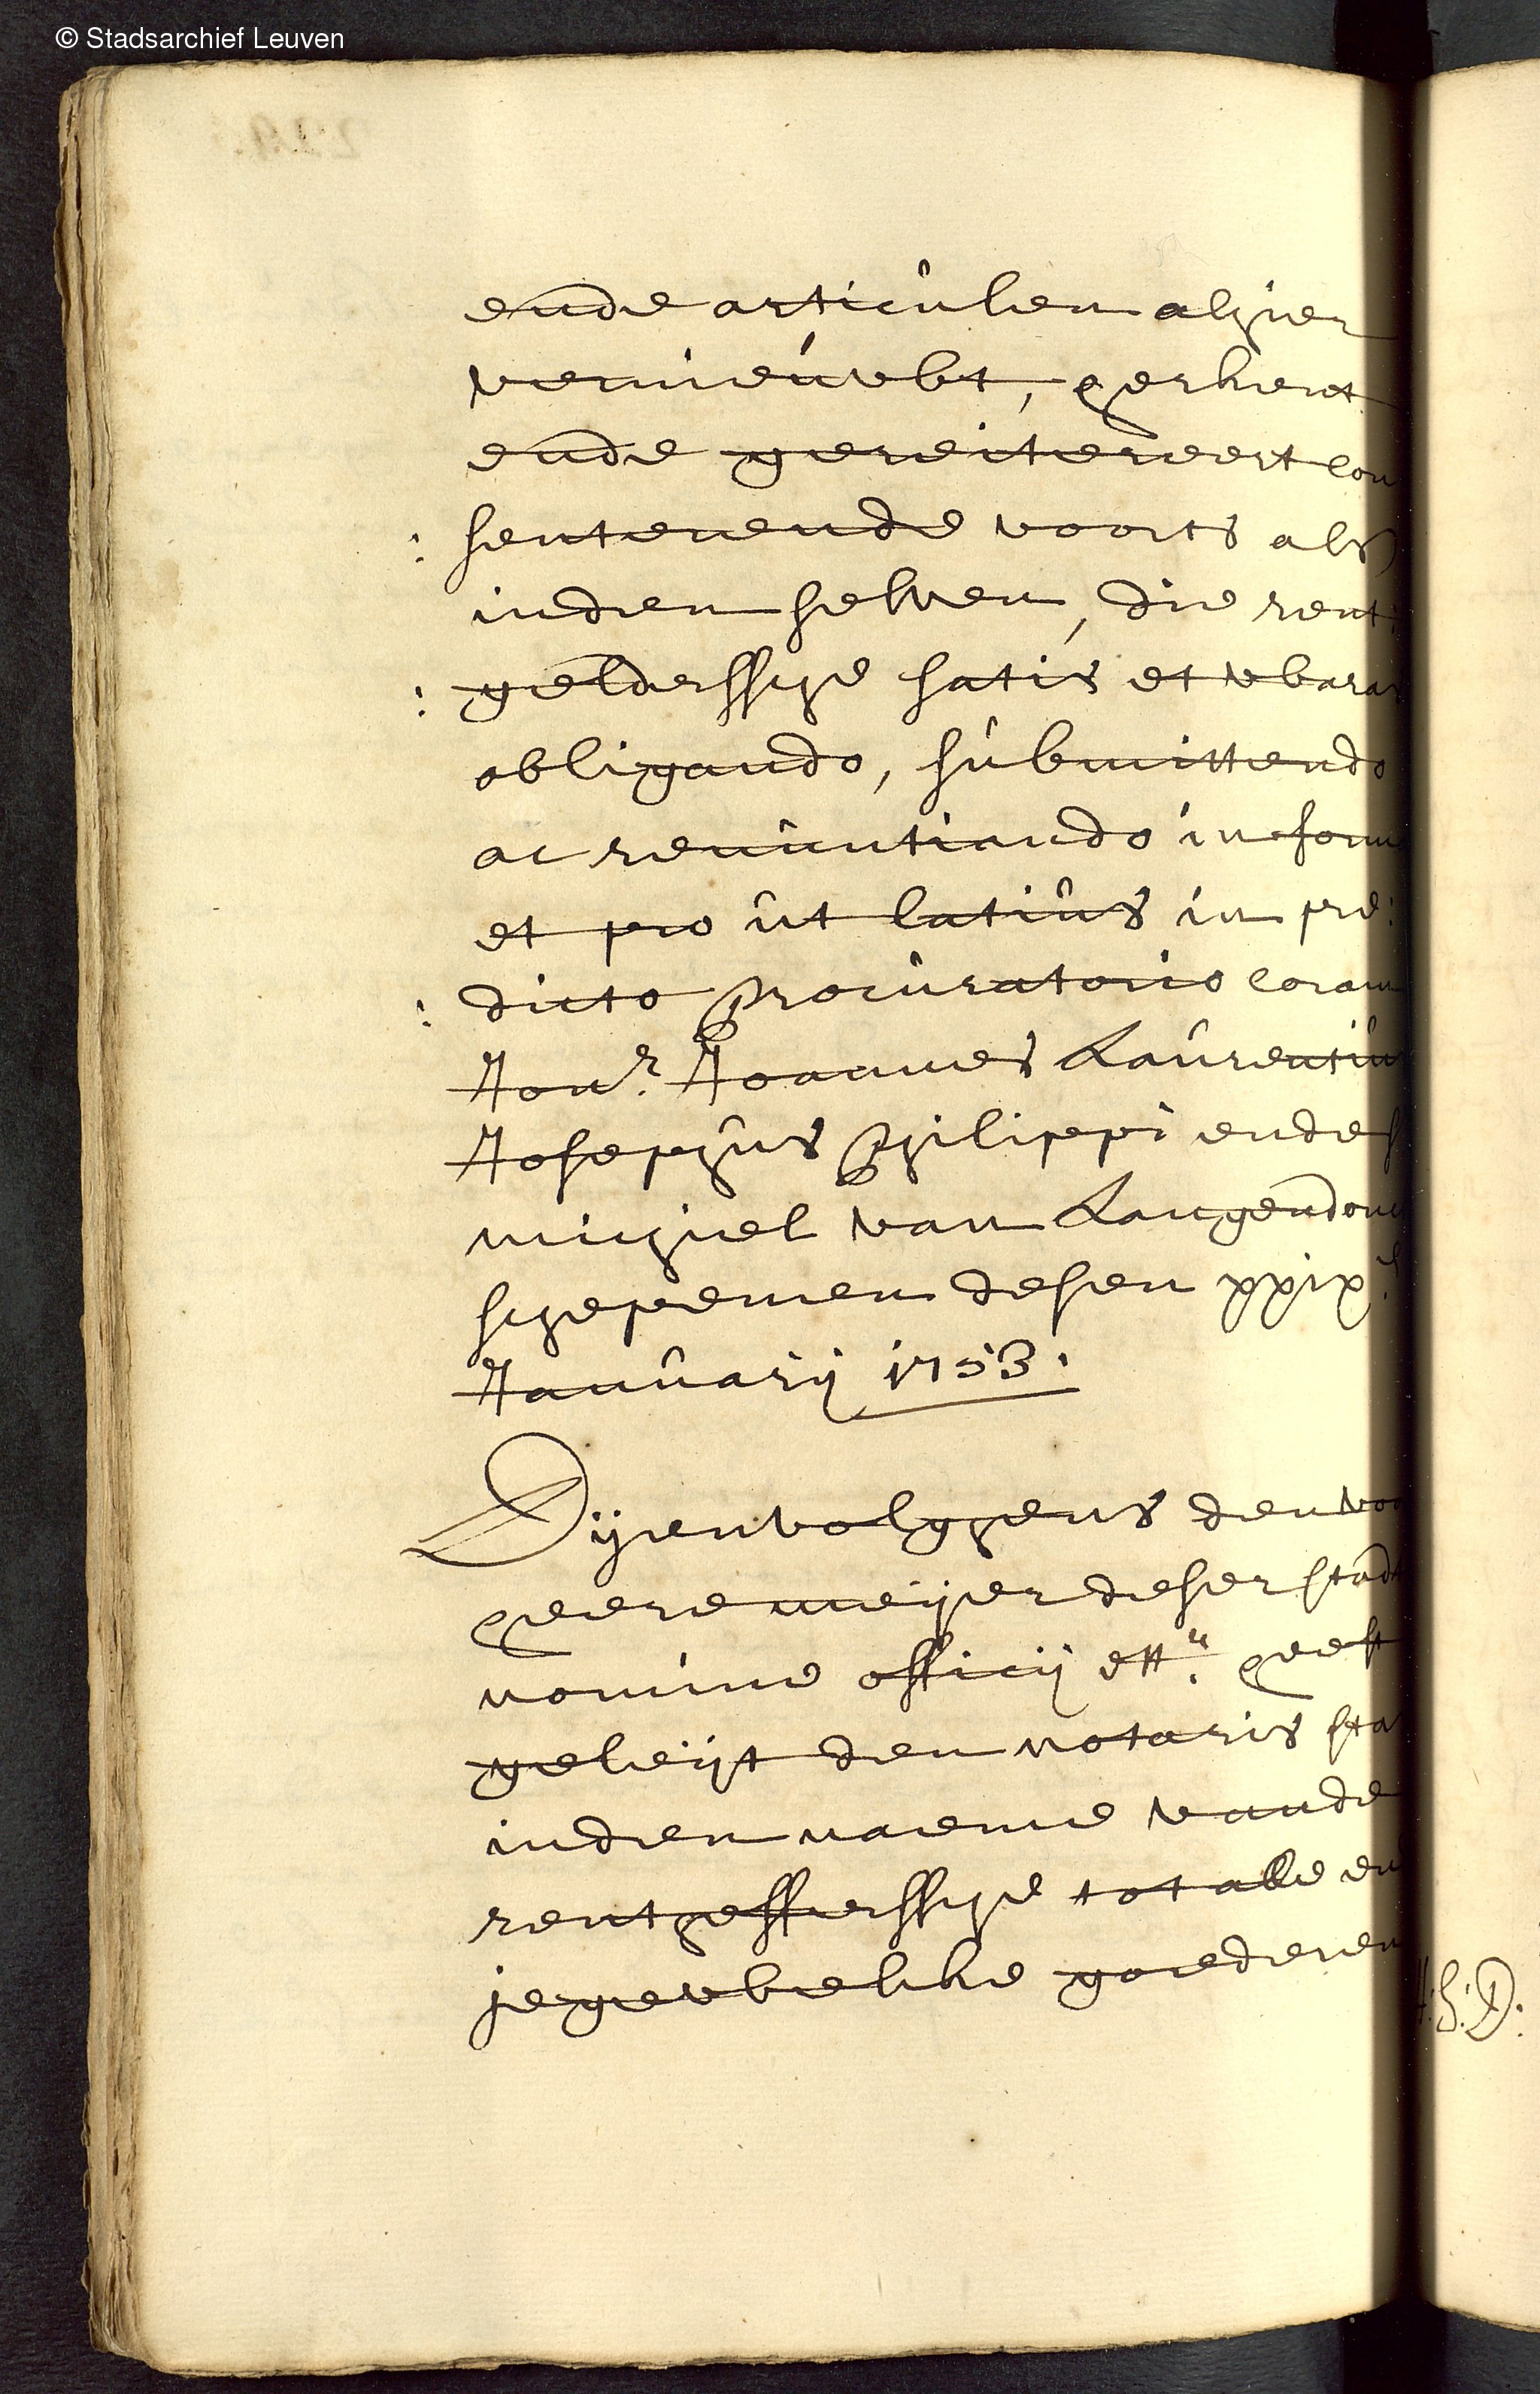 © Stadsarchief Leuven
ende articulen alhier
vernieuwt, herkent
ende gereitereert con
: senterende voorts als
inden selven, die rent
: gelderssche satis et waras
obligando, submittendo
ac renuntiando in form
et pro ut latius in pre:
: dicto procuratorio coram
Jonr. Joannes Laurentius
Josephus Philippi ende h
michiel van Langendonc
schepenen desen xxix
Januarij 1753.
Dijenvolghens den voo
heere meijer deser stadt
nomine officij etta. heeft
geleijt den notaris sta
inden naeme vande
renthefferssche tot alle en
jegewelcke goederen
H:S:D: